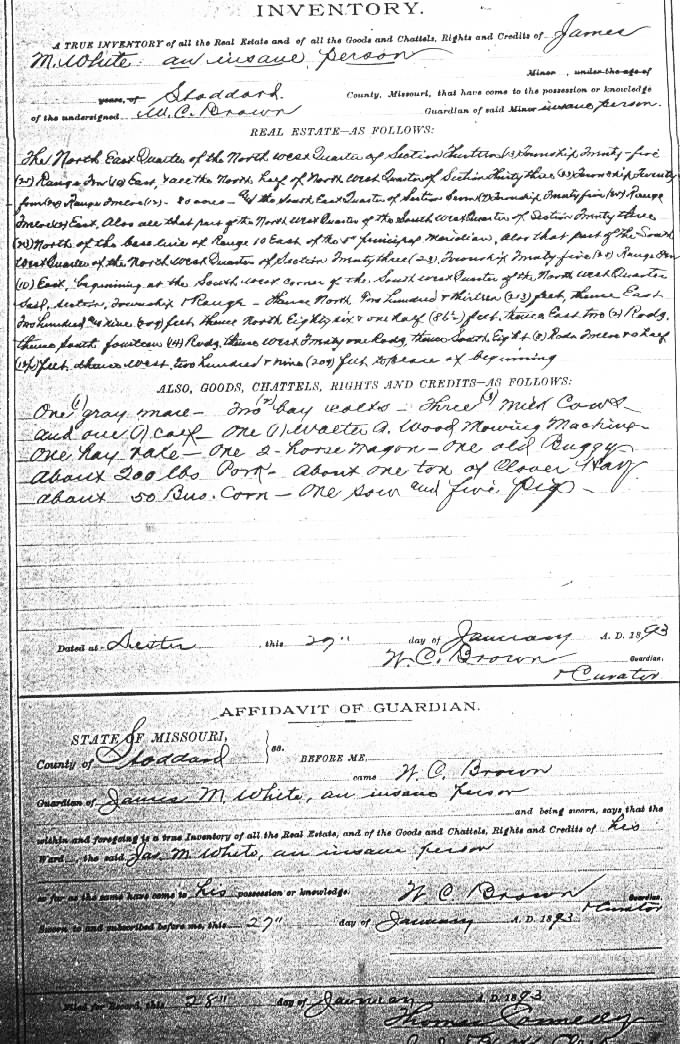 INVENTORY.
A TRUE INVENTORY of all the Real Estate and of all the Goods and Chattels, Rights and Credits of James
M. White an insane person
Minor , under the age of
years, of Stoddard County, Missouri, that have come to the possession or knowledge
of the undersigned W. C. Brown Guardian of said Minor insane person.
REAL ESTATE—AS FOLLOWS:
The North East Quarter of the North West Quarter of Section Thirteen (13) Township Twenty-five
(25) Range Ten (10) East, & all the North Half of North West Quarter of Section Thirty three (33) Township Twenty
four (24) Range Twelve (12) - 80 acres - and the South East Quarter of Section Seven (7) Township Twenty five (25) Range
Twelve (12) East. Also all that part of the North West Quarter of the South West Quarter of Section Twenty three
(23) North of the base line of Range 10 East of the 5" principal Meridian, also that part of the South
West Quarter of the North West Quarter of Section Twenty three (23) Township Twenty five (25) Range Ten
(10) East, beginning at the South West corner of the South West Quarter of the North West Quarter
Said, section, Township & Range - thence North Two hundred & thirteen (213) feet, thence East
Two hundred & nine (209) feet thence North Eighty six & one half (86½) feet, thence East two (2) Rods,
thence South fourteen (14) Rods, thence West Twenty one Rods, thence South Eight (8) Rods Twelve & a half
(12½) feet, thence West, two hundred & nine (209) feet to place of beginning
ALSO, GOODS, CHATTELS, RIGHTS AND CREDITS—AS FOLLOWS:
One (1) gray mare - Two (2) bay colts - Three (3) Milk Cows -
and one (1) calf - One (1) Walter A. Wood Mowing Machine -
One hay rake - One 2-horse wagon - One old Buggy
About 200 lbs Pork - About one ton of Clover Hay
about 50 Bus. Corn - One sow and five pigs -
Dated at Dexter , this 27" day of January A. D. 1893
W. C. Brown Guardian.
& Curator
AFFIDAVIT OF GUARDIAN.
STATE OF MISSOURI,
County of Stoddard } ss. BEFORE ME,
came W. C. Brown
Guardian of James M White, an insane person
and being sworn, says that the
within and foregoing is a true Inventory of all the Real Estate, and of the Goods and Chattels, Rights and Credits of his
Ward , the said Jas M White, an insane person
so far as the same have come to his possession or knowledge. W. C. Brown Guardian.
& Curator
Sworn to and subscribed before me, this 27" day of January A. D. 1893
Filed for Record, this 28" day of January A. D. 1893
Thomas Connelly